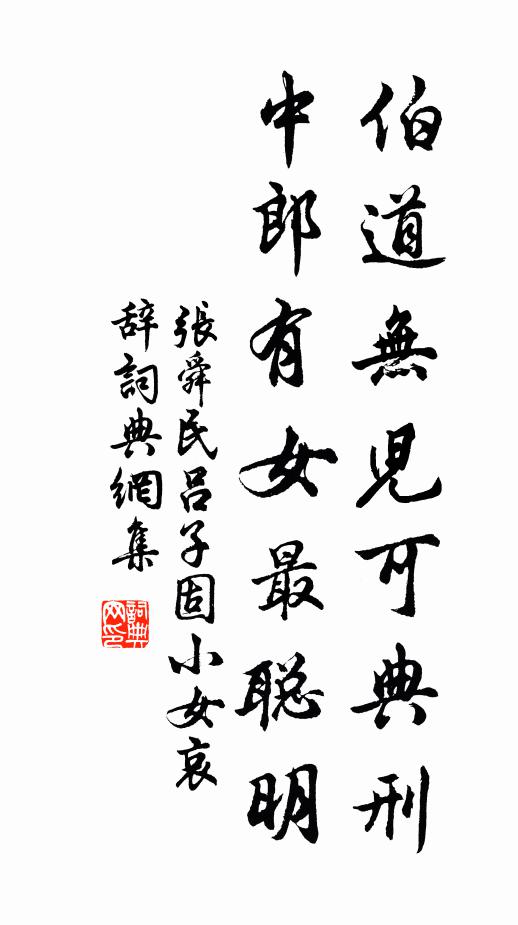 伯道無兒可典刑
中郎有女最聪明
張舜民吕子固小女哀
辞詞典網集
詞典网印